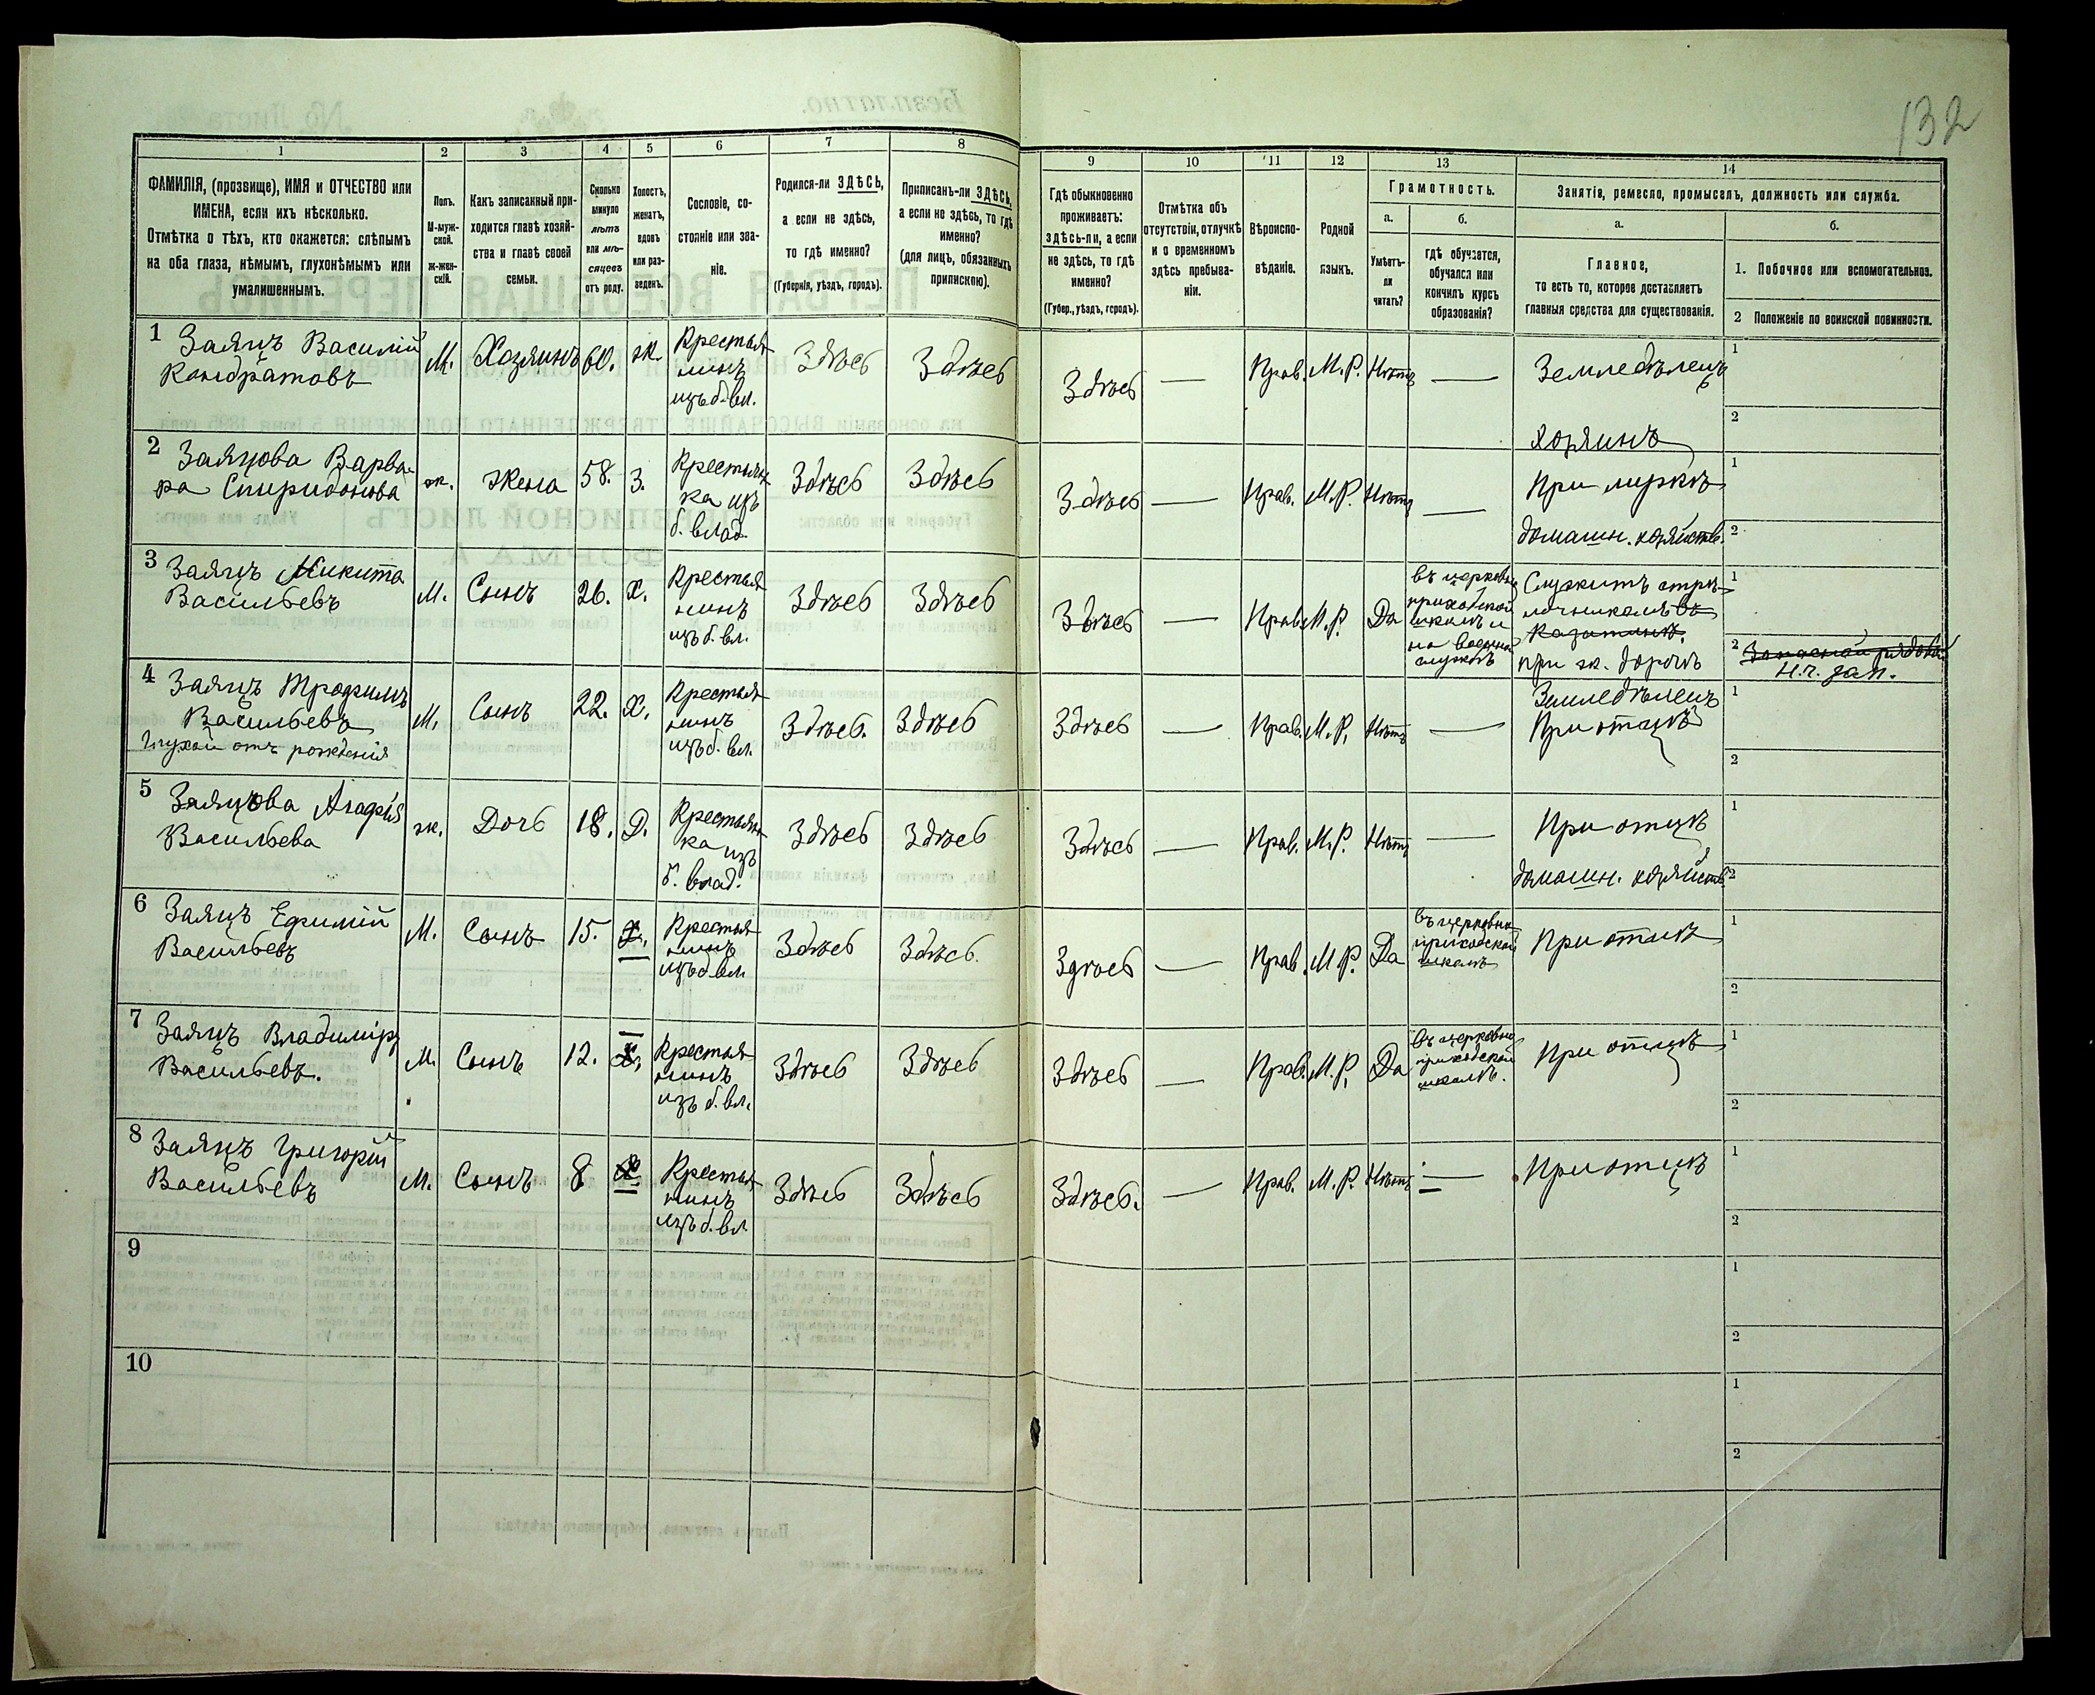 132
1 2 3 4 5 6 7 8 9 10 11 12 13 14
ФАМИЛІЯ, (прозвище), ИМЯ и ОТЧЕСТВО или
ИМЕНА, если ихъ нѣсколько.
Отмѣтка о тѣхъ, кто окажется: слѣпымъ
на оба глаза, нѣмымъ, глухонѣмымъ или
умалишеннымъ.
Полъ.
М-муж-
ской.
Ж-жен-
скій.
Какъ записанный при-
ходится главѣ хозяй-
ства и главѣ своей
семьи.
Сколько
минуло
лѣтъ
или мѣ-
сяцевъ
отъ роду.
Холостъ,
женатъ,
вдовъ
или раз-
веденъ.
Сословіе, со-
стояніе или зва-
ніе.
Родился-ли ЗДѢСЬ,
а если не здѣсь,
то гдѣ именно?
(Губернія, уѣздъ, городъ).
Приписанъ-ли ЗДѢСЬ,
а если не здѣсь, то гдѣ
именно?
(для лицъ, обязанныхъ
припискою).
Гдѣ обыкновенно
проживаетъ:
здѣсь-ли, а если
не здѣсь, то гдѣ
именно?
(Губер., уѣздъ, городъ).
Отмѣтка объ
отсутствіи, отлучкѣ
и о временномъ
здѣсь пребыва-
ніи.
Вѣроиспо-
вѣданіе.
Родной
языкъ.
Грамотность.
а.
Умѣетъ-
ли
читать?
б.
гдѣ обучается,
обучался или
кончилъ курсъ
образованія?
Занятія, ремесло, промыселъ, должность или служба.
а.
Главное,
то есть то, которое доставляетъ
главныя средства для существованія.
б.
1. Побочное или вспомогательное.
2 Положеніе по воинской повинности.
1 Заяцъ Василій
Кондратовъ
М. Хозяинъ 60. ж. Крестья-
нинъ
изъ б. вл.
Здѣсь Здѣсь Здѣсь — Прав. М.Р. Нѣтъ — Земледѣлецъ
хозяинъ
1
2
2 Заяцова Варва-
ра Спиридонова
ж. Жена 58. З. Крестьян-
ка изъ
б. влад.
Здѣсь Здѣсь Здѣсь — Прав. М.Р. Нѣтъ — При мужѣ
домашн. хозяйств.
1
2
3 Заяцъ Микита
Васильевъ
М. Сынъ 26. Х. Крестья-
нинъ
изъ б. вл.
Здѣсь Здѣсь Здѣсь — Прав. М.Р. Да
въ церковно
приходской
школѣ и
на военной
службѣ
Служитъ стрѣ-
лочникомъ въ
Казатинѣ.
при ж. дорогѣ
1
2 Запасной рядовой
н.ч. зап.
4 Заяцъ Трофимъ
Васильевъ
Глухой отъ рожденія
М. Сынъ 22. Х. Крестья-
нинъ
изъ б. вл.
Здѣсь. Здѣсь Здѣсь — Прав. М.Р. Нѣтъ — Земледѣлецъ
При отцѣ
1
2
5 Заяцова Агафія
Васильева
ж. Дочь 18. Д. Крестьян-
ка изъ
б. влад.
Здѣсь Здѣсь Здѣсь — Прав. М.Р. Нѣтъ — При отцѣ
домашн. хозяйств.
1
2
6 Заяцъ Ефимій
Васильевъ
М. Сынъ 15. Х. Крестья-
нинъ
изъ б. вл.
Здѣсь Здѣсь. Здѣсь — Прав. М.Р. Да
въ церковно
приходской
школѣ
При отцѣ
1
2
7 Заяцъ Владиміръ
Васильевъ.
М. Сынъ 12. Х. Крестья-
нинъ
изъ б. вл.
Здѣсь Здѣсь Здѣсь — Прав. М.Р. Да
Въ церковно
приходской
школѣ.
При отцѣ
1
2
8 Заяцъ Григорій
Васильевъ
М. Сынъ 8 Х. Крестья-
нинъ
изъ б. вл
Здѣсь Здѣсь Здѣсь. — Прав. М.Р. Нѣтъ — При отцѣ
1
2
9
1
2
10
1
2